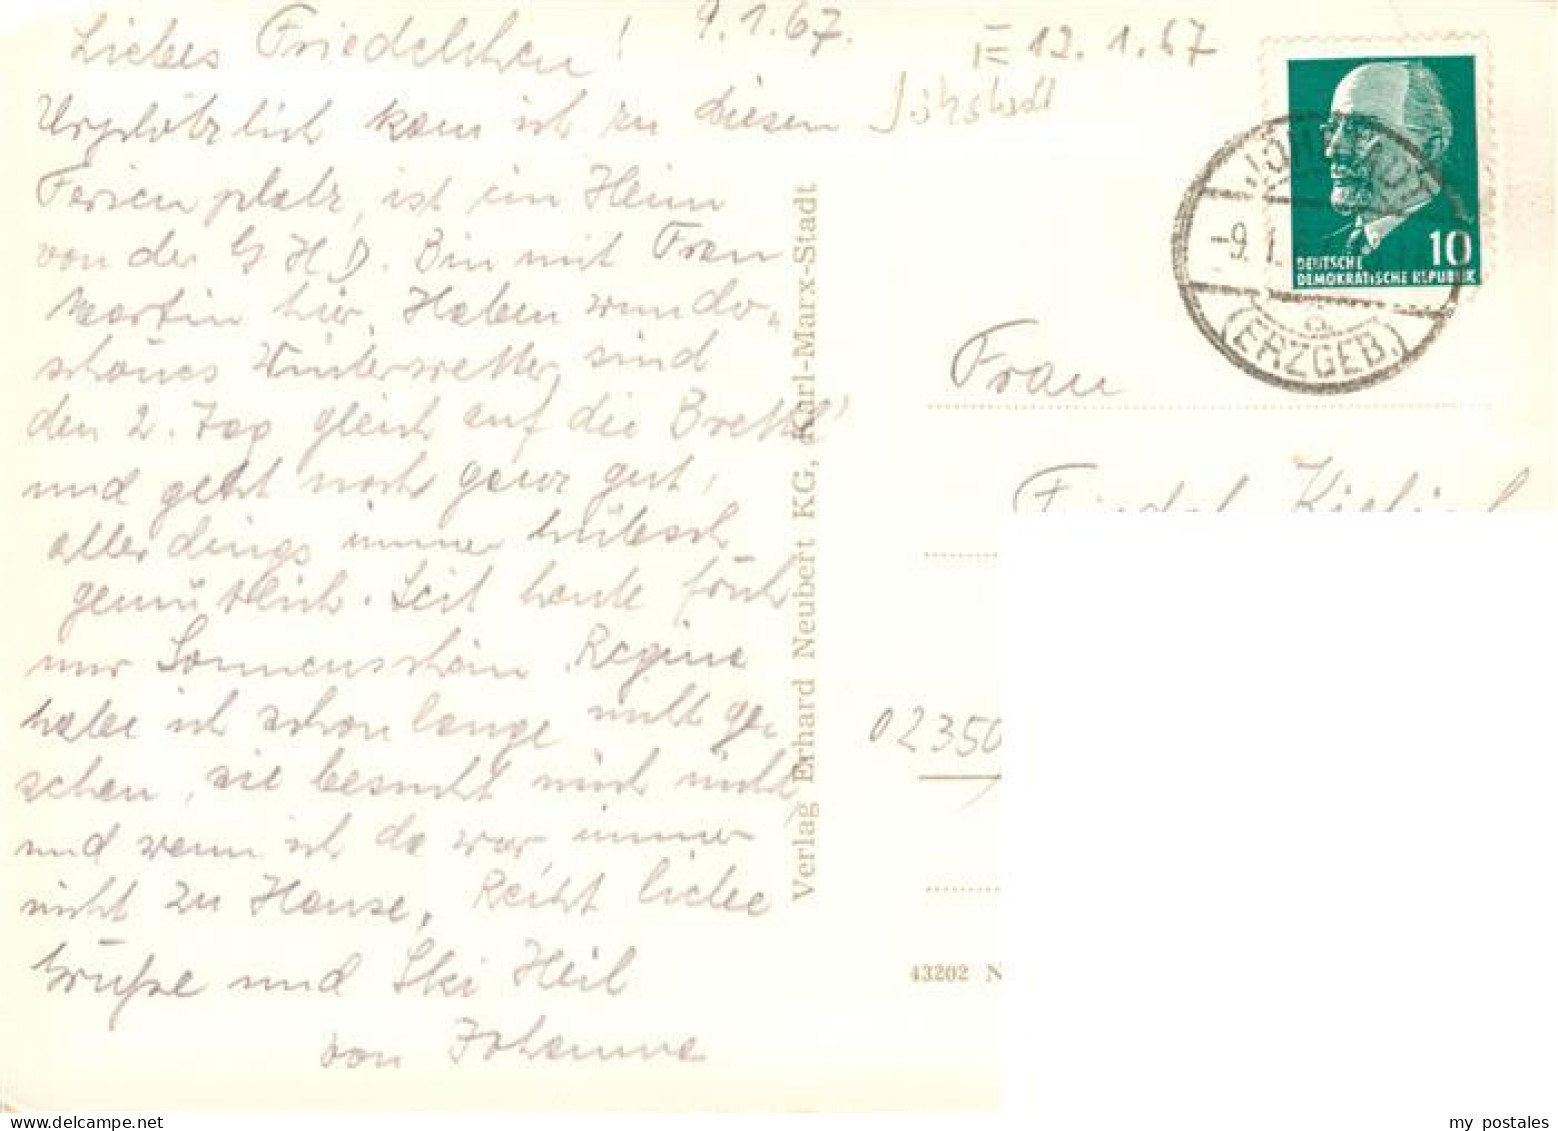 Liebes Friedelchen! 9.1.67.
E 12.1.67
Jöhstadt
Urplötzlich kam ich zu diesem
Ferienplatz, ist ein Heim
von der GHD. Bin mit Frau
Martin hier. Haben wunder-
schönes Winterwetter, sind
den 2. Tag gleich auf die Brettl'
und geht noch ganz gut,
allerdings immer hübsch
gemütlich. Seit heute früh
nur Sonnenschein. Regine
habe ich schon lange nicht ge-
sehen, sie besucht mich nicht
und wenn ich da war, immer
nicht zu Hause. Recht liebe
Grüße und Ski Heil
von Johanna
Verlag Erhard Neubert KG, Karl-Marx-Stadt
10
DEUTSCHE
DEMOKRATISCHE REPUBLIK
JÖHSTADT
-9.1.
a
(ERZGEB.)
Frau
Friedel
02350
43202 N
my postales